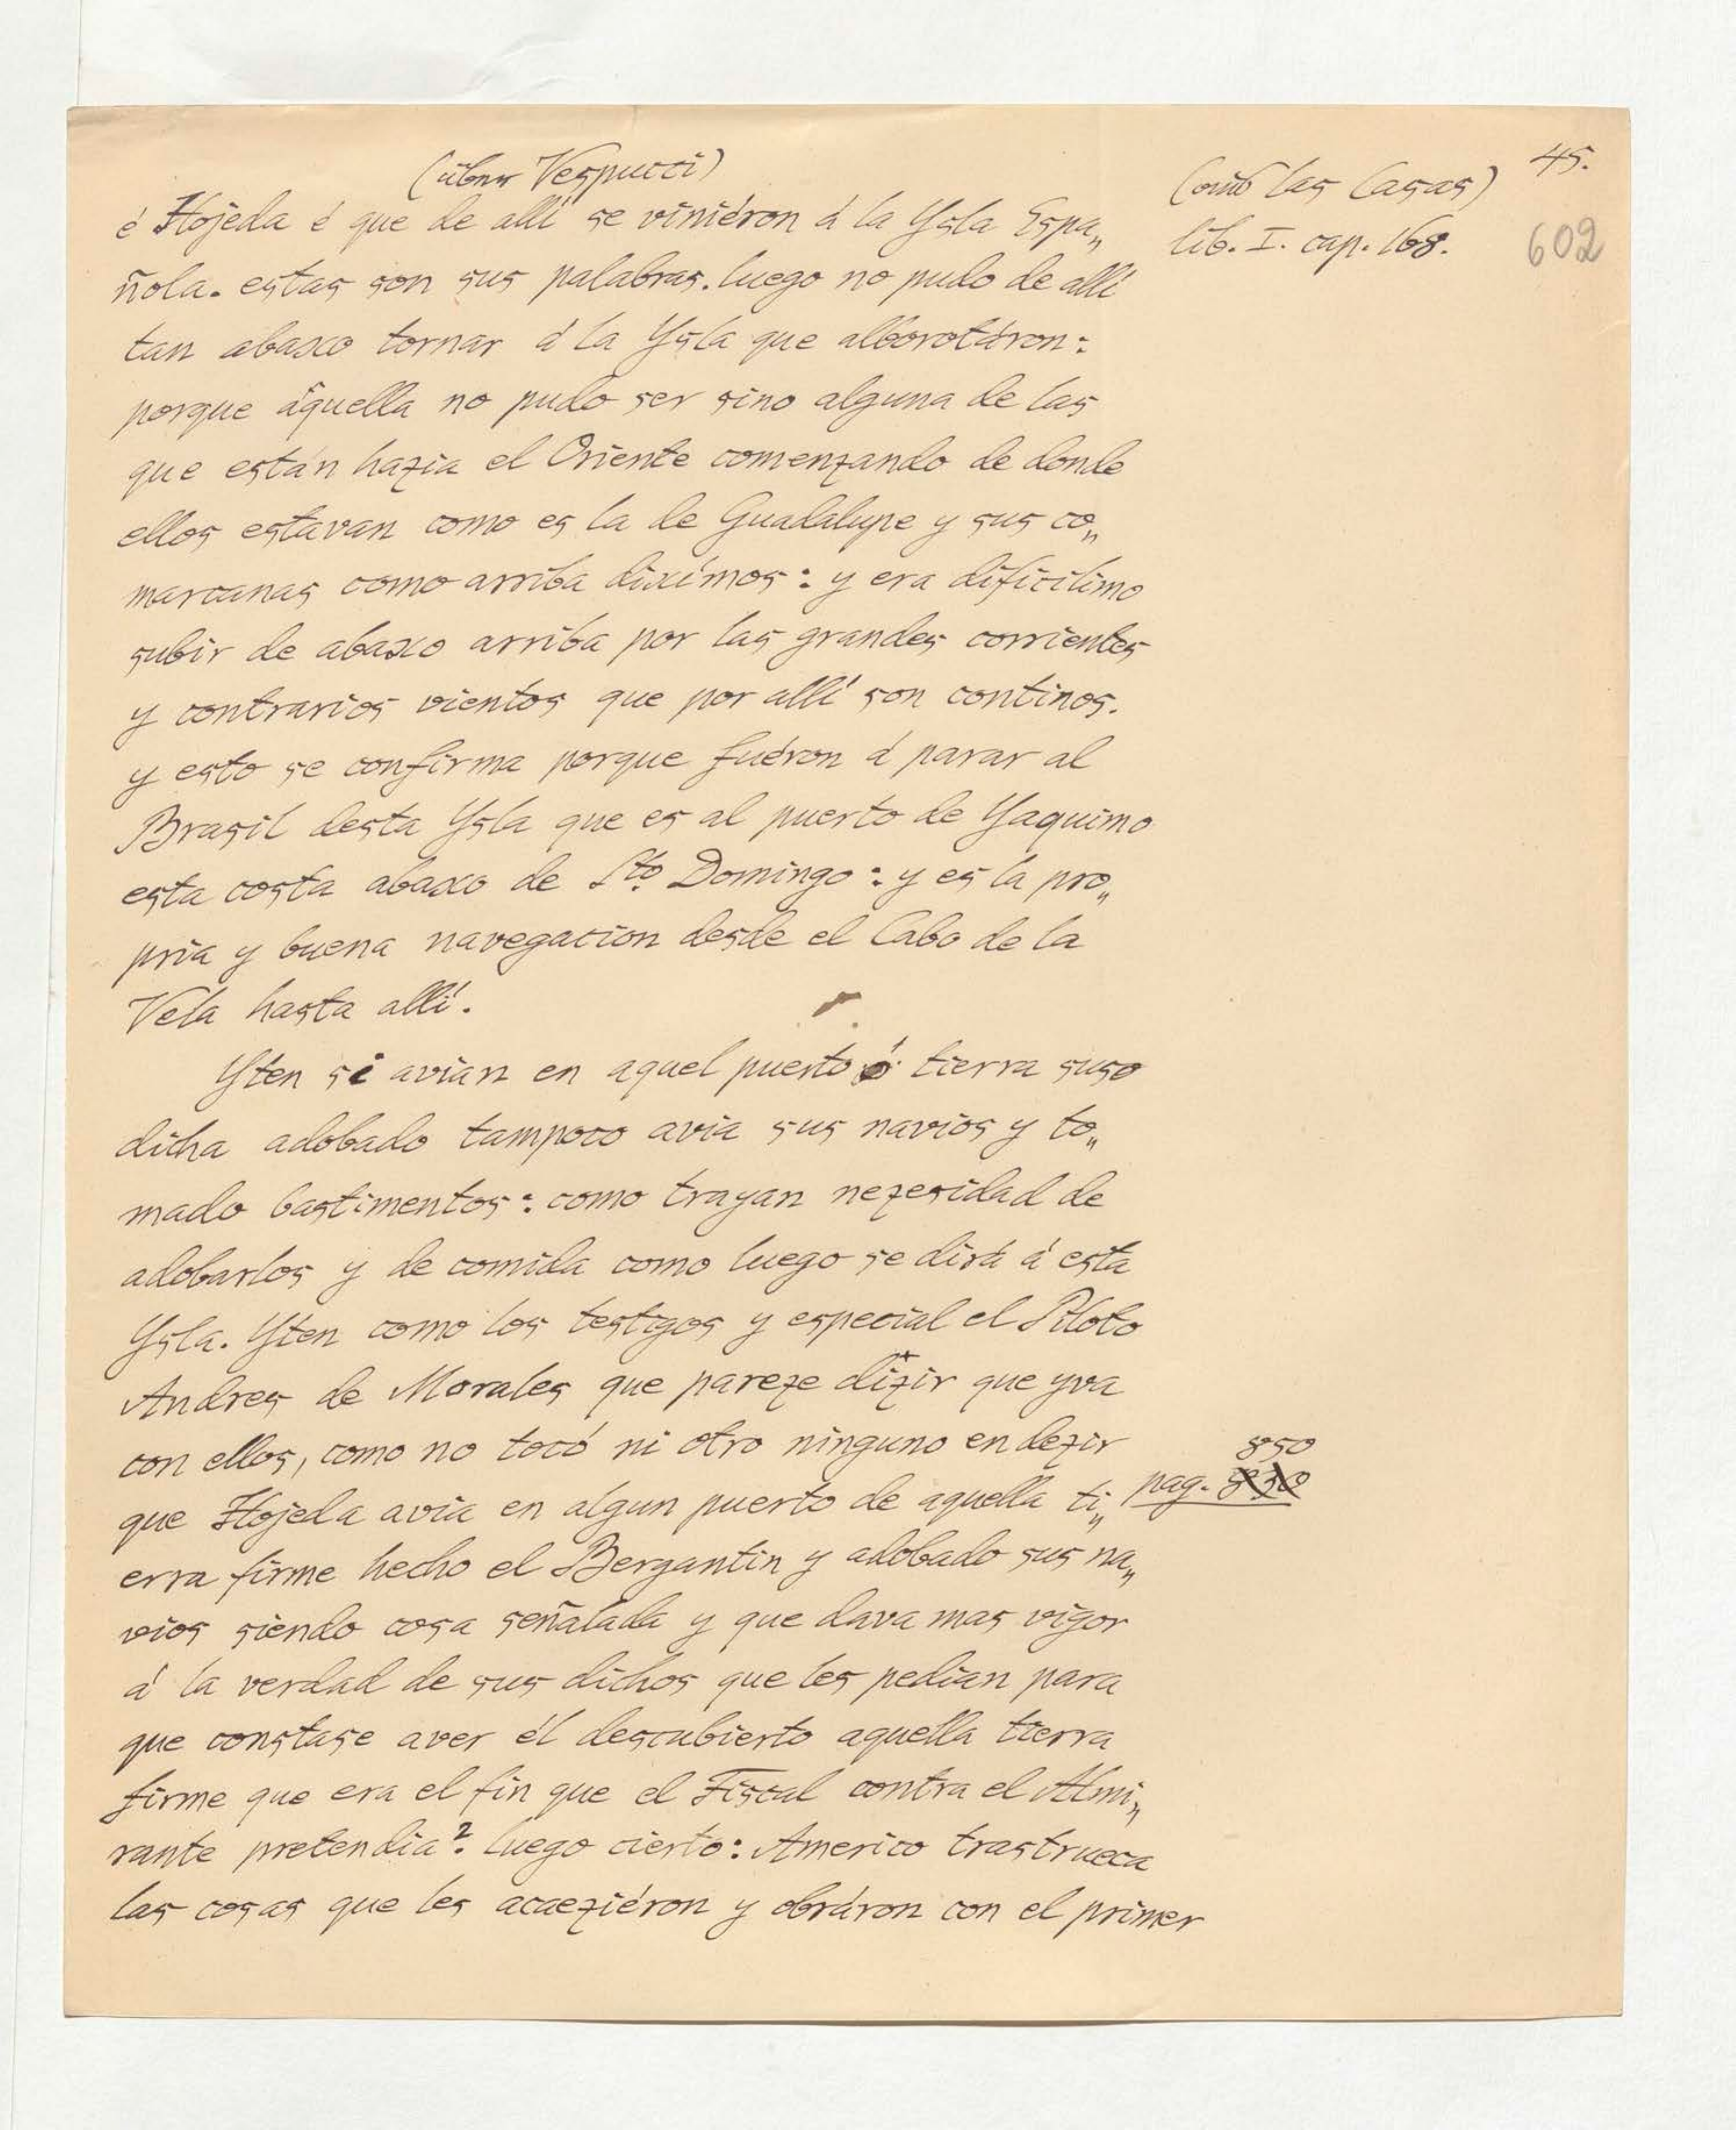 (über Vespucci)
(aus las Casas)
45.
lib. I. cap. 168.
602
é Hojeda é que de allí se viniéron á la Ysla Espa„
ñola. estas son sus palabras. luego no pudo de allí
tan abaxo tornar á la Ysla que alborotáron:
porque áquella no pudo ser sino alguna de las
que están hazia el Oriente comenzando de donde
ellos estavan como es la de Guadalupe y sus co„
marcanas como arriba diximos: y era dificilimo
subir de abaxo arriba por las grandes corrientes
y contrarios vientos que por allí son continos.
y esto se confirma porque fuéron á parar al
Brasil desta Ysla que es al puerto de Yaquimo
esta costa abaxo de Sto Domingo: y es la pro„
pria y buena navegacion desde el Cabo de la
Vela hasta allí.
Yten si avian en aquel puerto ó tierra suso
dicha adobado tampoco avia sus navios y to„
mado bastimentos: como trayan nezesidad de
adobarlos y de comida como luego se dirá á esta
Ysla. Yten como los testigos y especial el Piloto
Andres de Morales que pareze dizir que yva
con ellos, como no tocó ni otro ninguno en dezir
850
que Hojeda avia en algun puerto de aquella ti„ pag. 830
erra firme hecho el Bergantin y adobado sus na„
vios siendo cosa señalada y que dava mas vigor
á la verdad de sus dichos que les pedian para
que constase aver él descubierto aquella tierra
firme que era el fin que el Fiscal contra el Almi„
rante pretendia? luego cierto: Americo trastrueca
las cosas que les acaeziéron y obráron con el primer